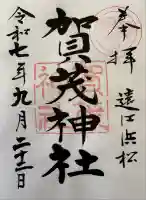 奉拝
遠江浜松
賀茂神社
令和七年九月二十二日